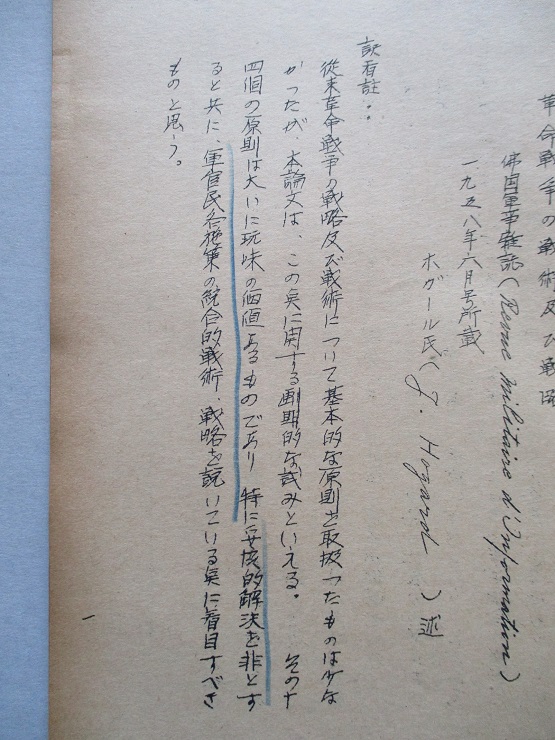 革命戦争の戦術及び戦略
佛国軍事雑誌(Revue militaire d'Information)
一九五八年六月号所載
ホガール氏(J. Hogard)述
訳者註:
従来革命戦争の戦略及び戦術について基本的な原則を取扱ったものは少な
かったが、本論文は、この点に関する画期的な試みといえる。 その十
四個の原則は大いに玩味の価値あるものであり 特に妥協的解決を非とす
ると共に、軍官民各施策の統合的戦術、戦略を説いている点に着目すべき
ものと思う。
一